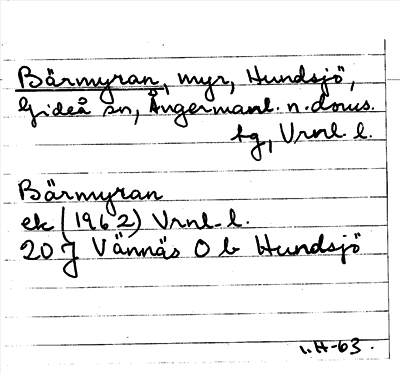 Bärmyran, myr, Hundsjö,
Gideå sn, Ångermanl. n. doms.
tg, Vrnl. l.
Bärmyran
ek (1962) Vrnl. l.
20 J Vännäs 0 b Hundsjö
H-63.